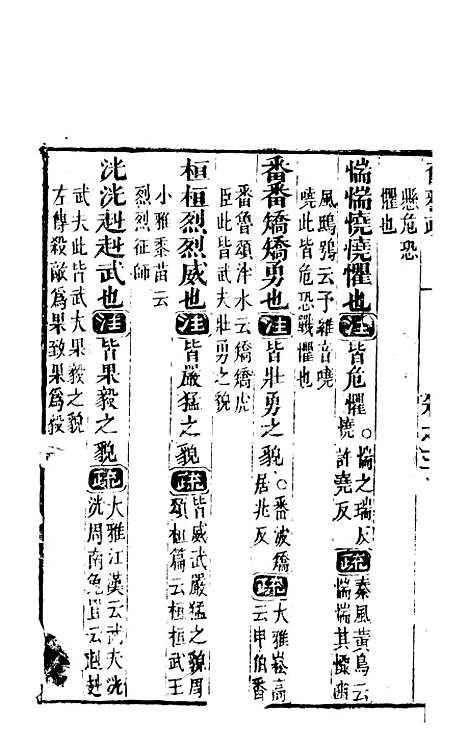 懸危恐
懼也
惴惴憢憢懼也注皆危懼○惴之瑞反
憢許堯反疏秦風黃鳥云
惴惴其慄豳
風鴟鴞云予維音嘵
嘵此皆危恐戰懼也
番番矯矯勇也注皆壯勇之貌○番波矯
居兆反疏大雅崧高
云申伯番
番魯頌泮水云矯矯虎
臣此皆武夫壯勇之貌
桓桓烈烈威也注皆嚴猛之貌疏皆威武嚴猛之貌周
頌桓篇云桓桓武王
小雅黍苗云
烈烈征師
洸洸赳赳武也注皆果毅之貌疏大雅江漢云武夫洸
洸周南兔罝云赳赳
武夫此皆武大果毅之貌
左傳殺敵爲果致果爲毅